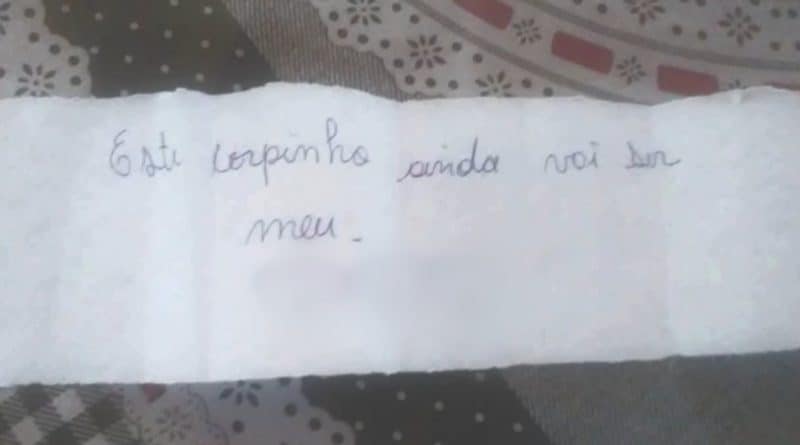 Este corpinho ainda vai ser
meu.